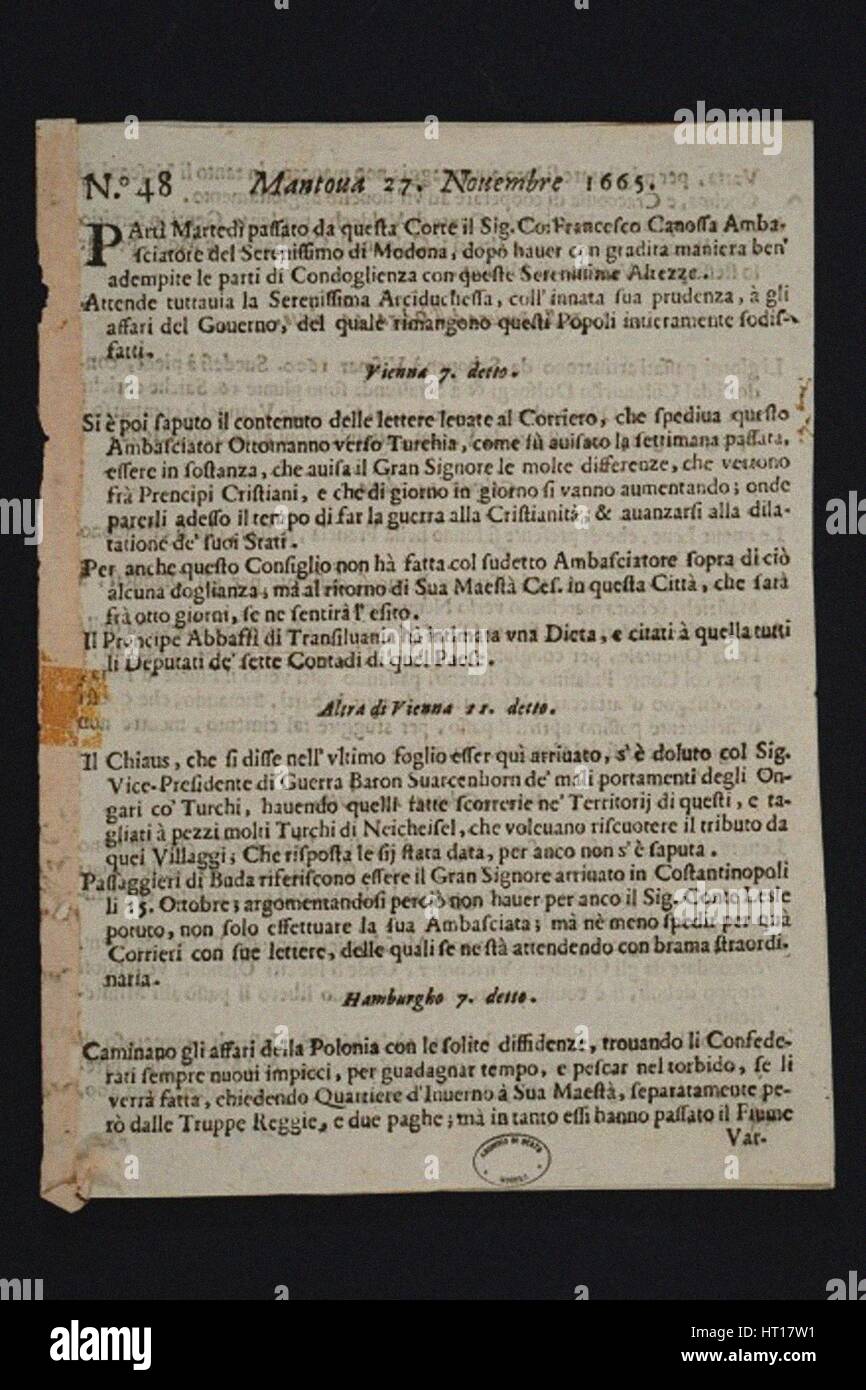 N.º 48 Mantoua 27. Nouembre 1665.
PArtì Martedì passato da questa Corte il Sig. Co: Francesco Canossa Amba-
sciatore del Serenissimo di Modona, dopò hauer con gradita maniera ben'
adempite le parti di Condoglienza con queste Serenissime Altezze.
Attende tuttauia la Serenissima Arciduchessa, coll' innata sua prudenza, à gli
affari del Gouerno, del quale rimangono questi Popoli intieramente sodis-
fatti.
Vienna 7. detto.
Si è poi saputo il contenuto delle lettere leuate al Corriero, che spediua questo
Ambasciator Ottomanno verso Turchia, come fù auisato la settimana passata,
essere in sostanza, che auisa il Gran Signore le molte differenze, che vertono
frà Prencipi Cristiani, e che di giorno in giorno si vanno aumentando; onde
parerli adesso il tempo di far la guerra alla Cristianità, & auanzarsi alla dila-
tatione de' suoi Stati.
Per anche questo Consiglio non hà fatta col sudetto Ambasciatore sopra di ciò
alcuna doglianza, mà al ritorno di Sua Maestà Ces. in questa Città, che sarà
frà otto giorni, se ne sentirà l' esito.
Il Prencipe Abbaffi di Transiluania hà intimata vna Dieta, e citati à quella tutti
li Deputati de' sette Contadi di quel Paese.
Altra di Vienna 11. detto.
Il Chiaus, che si disse nell' vltimo foglio esser quì arriuato, s' è doluto col Sig.
Vice-Presidente di Guerra Baron Suarcenhorn de' mali portamenti degli On-
gari co' Turchi, hauendo quelli fatte scorrerie ne' Territorij di questi, e ta-
gliati à pezzi molti Turchi di Neicheisel, che voleuano riscuotere il tributo da
quei Villaggi; Che risposta le sij stata data, per anco non s' è saputa.
Passaggieri di Buda riferiscono essere il Gran Signore arriuato in Costantinopoli
li 15. Ottobre; argomentandosi perciò non hauer per anco il Sig. Conte Lesle
potuto, non solo effettuare la sua Ambasciata; mà nè meno spedir per quà
Corrieri con sue lettere, delle quali se ne stà attendendo con brama straordi-
naria.
Hamburgho 7. detto.
Caminano gli affari della Polonia con le solite diffidenze, trouando li Confede-
rati sempre nuoui impicci, per guadagnar tempo, e pescar nel torbido, se li
verrà fatta, chiedendo Quartiere d'Inuerno à Sua Maestà, separatamente pe-
rò dalle Truppe Reggie, e due paghe; mà in tanto essi hanno passato il Fiume
Var-
alamy
a
alamy
Image ID: HT17W1
www.alamy.com